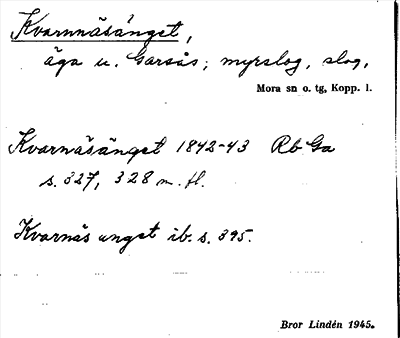 Kvarnnäsänget,
äga u. Garsås; myrslog, slog,
Mora sn o. tg, Kopp. l.
Kvarnäsänget 1842-43 Rb Ga
s. 327, 328 m. fl.
Kvarnäs ungat ib. s. 395.
Bror Lindén 1945.